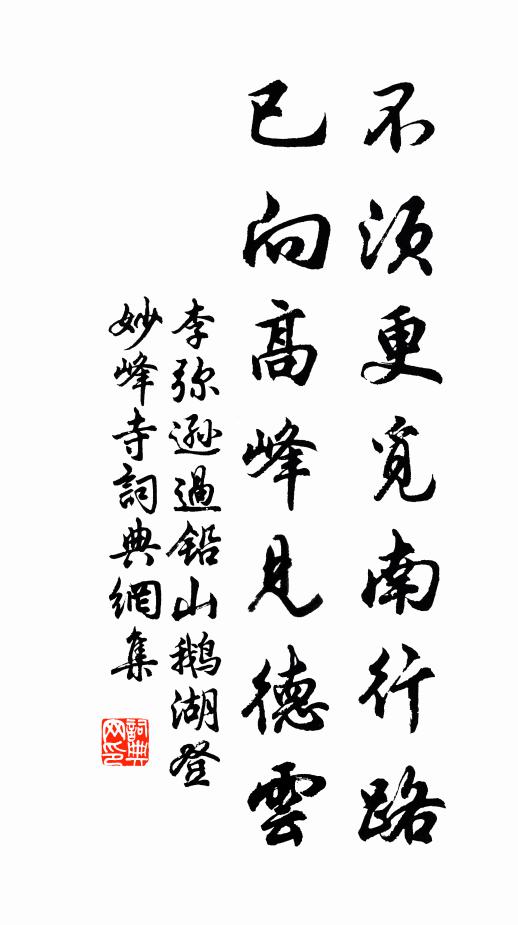 不須更覓南行路
已向高峰見德雲
李弥遜過鉛山鵝湖登
妙峰寺詞典網集
詞典网印